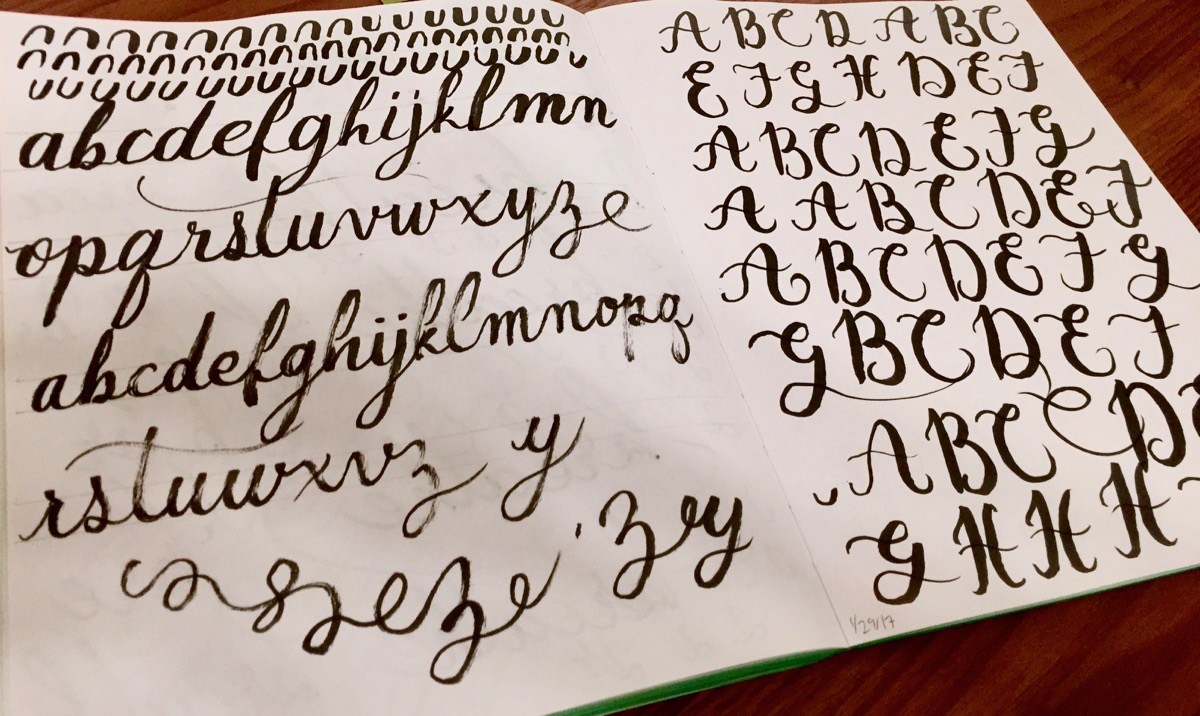 abcdefghijklmn
opqrstuvwxyz
abcdefghijklmnopq
rstuwxvz y
z ey
A B C D A B C
E F G H D E F
A B C D E F G
A A B C D E F
A B C D E F G
G B C D E F
A B C D
G H H H
1/29/17